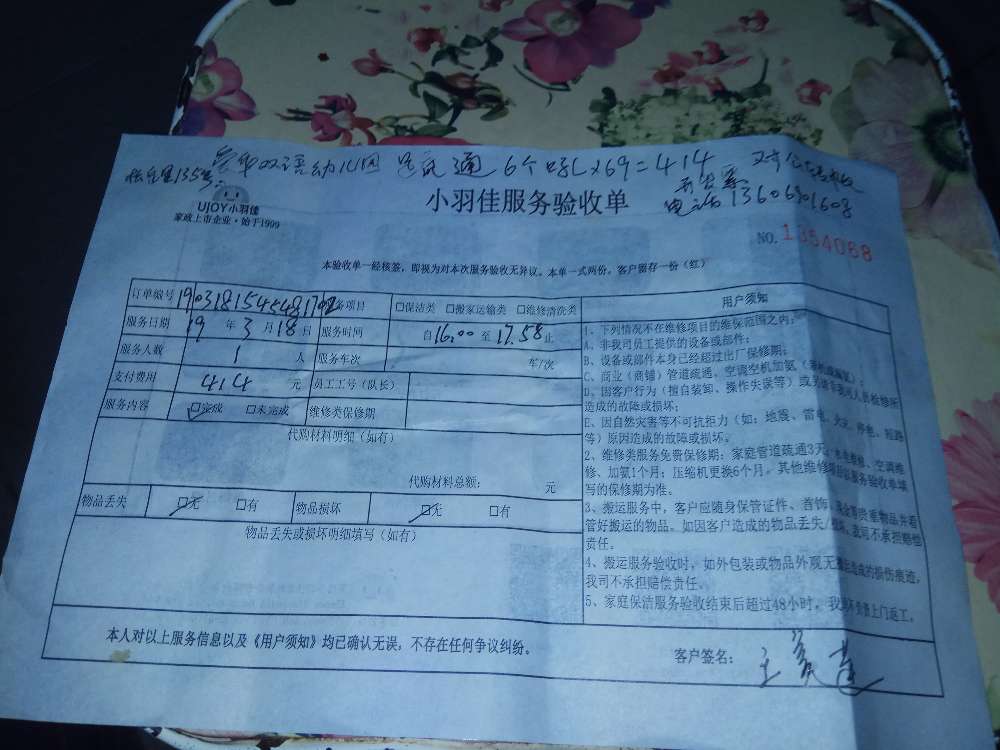 双语幼儿园 通 6个 x69=414
张 里135号
开发票
电话13606901608
UJOY小羽佳
家政上市企业·始于1999
小羽佳服务验收单
NO.1354068
本验收单一经核签,即视为对本次服务验收无异议。本单一式两份,客户留存一份(红)
订单编号 服务项目 □保洁类 □搬家运输类 □维修清洗类
服务日期 19年3月18日 服务时间 自16:00至17:58止
服务人数 1人 服务车次 车/次
支付费用 414元 员工工号(队长)
服务内容 □完成 □未完成 维修类保修期
代购材料明细(如有)
代购材料总额: 元
物品丢失 □无 □有 物品损坏 □无 □有
物品丢失或损坏明细填写(如有)
用户须知
1、下列情况不在维修项目的维保范围之内:
A、非我司员工提供的设备或部件;
B、设备或部件本身已经超过出厂保修期;
C、商业(商铺)管道疏通、空调空机加氨
D、因客户行为(擅自装卸、操作失误等)或 人员检修所
造成的故障或损坏;
E、因自然灾害等不可抗拒力(如:地震、雷电、火灾、停电、短路
等)原因造成的故障或损坏。
2、维修类服务免费保修期:家庭管道疏通3天, 空调维
修、加氨1个月;压缩机更换6个月。其他维修 服务验收单填
写的保修期为准。
3、搬运服务中,客户应随身保管证件、首饰、 贵重物品并看
管好搬运的物品。如因客户造成的物品丢失 我司不承担赔偿
责任。
4、搬运服务验收时,如外包装或物品外观无 造成的损伤痕迹,
我司不承担赔偿责任。
5、家庭保洁服务验收结束后超过48小时, 上门返工。
本人对以上服务信息以及《用户须知》均已确认无误,不存在任何争议纠纷。
客户签名: